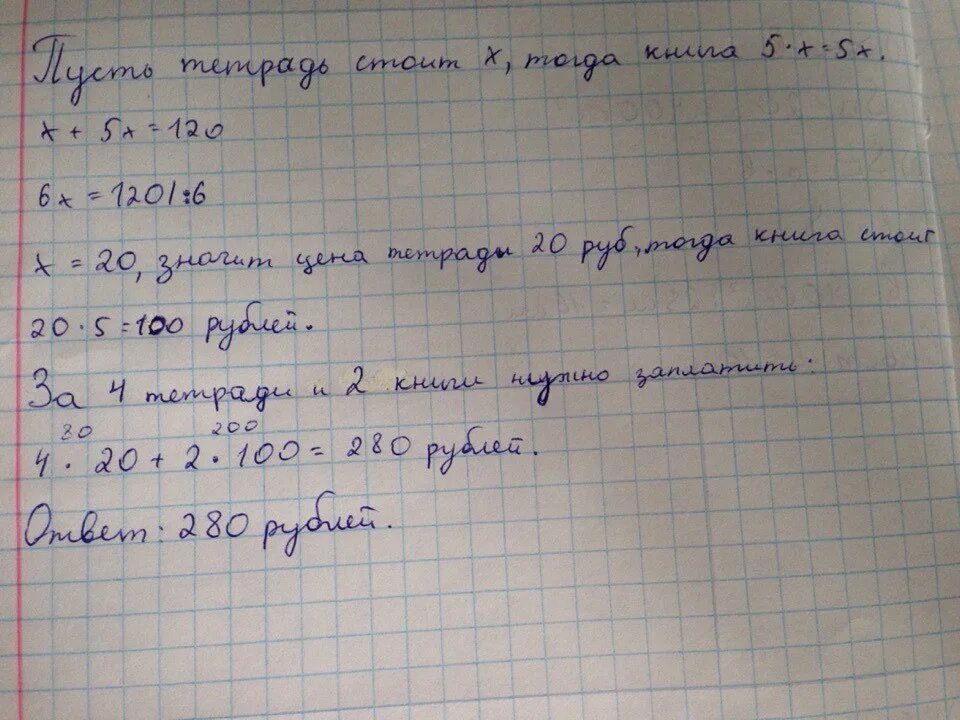 Пусть тетрадь стоит x, тогда книга 5·x=5x.
x + 5x = 120
6x = 120 | :6
x = 20, значит цена тетради 20 руб, тогда книга стоит
20·5=100 рублей.
За 4 тетради и 2 книги нужно заплатить:
80 200
4 · 20 + 2 · 100 = 280 рублей.
Ответ: 280 рублей.